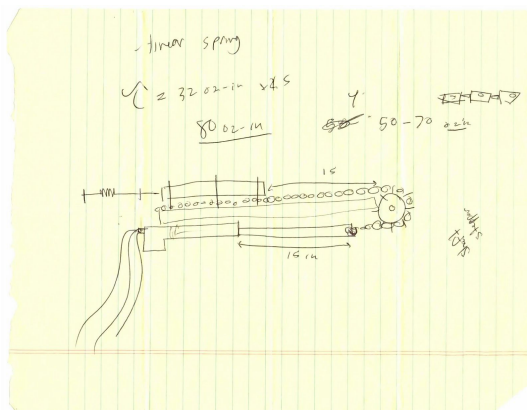 - linear spring
τ = 32 oz-in
80 oz-in
4
50-70 oz-in
15
15 in